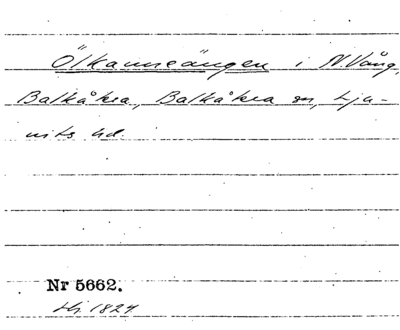 Ölkanneängen i N. Vång,
Balkåkra, Balkåkra sn, Lju-
nits hd.
Nr 5662.
Hj 1824